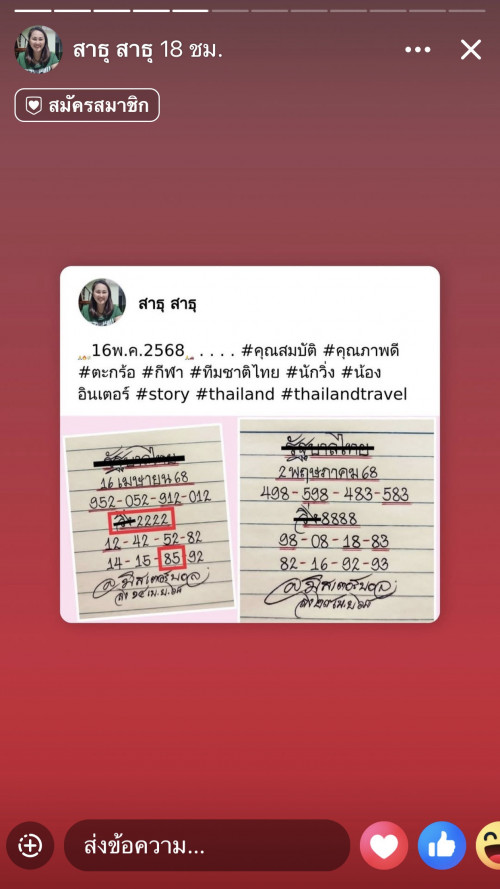 สาธุ สาธุ 18 ชม.
สมัครสมาชิก
สาธุ สาธุ
🙏16พ.ค.2568🙏 . . . . #คุณสมบัติ #คุณภาพดี
#ตะกร้อ #กีฬา #ทีมชาติไทย #นักวิ่ง #น้อง
อินเตอร์ #story #thailand #thailandtravel
รัฐบาลไทย
16 เมษายน 68
952-052-912-012
วิ่ง 2222
12-42-52-82
14-15-85-92
รัฐบาลไทย
2 พฤษภาคม 68
498-598-483-583
วิ่ง 8888
98-08-18-83
82-16-92-93
ส่งข้อความ...